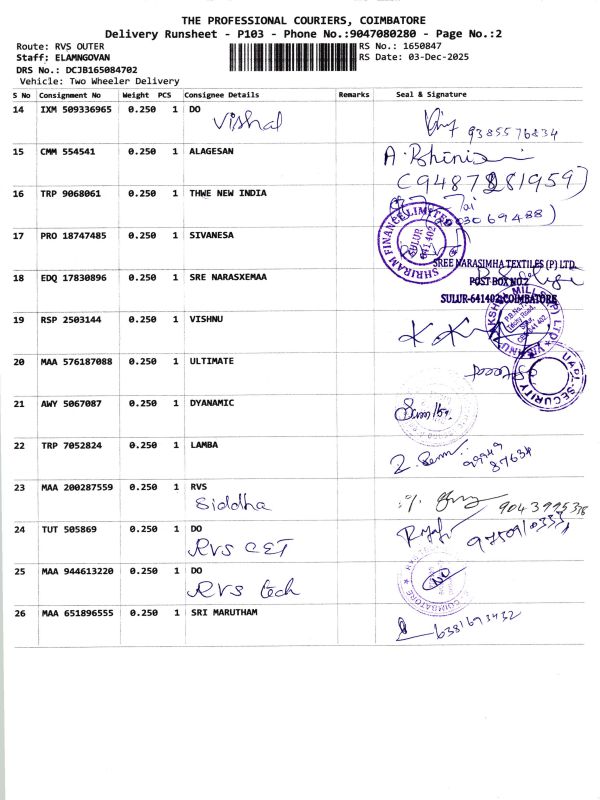 THE PROFESSIONAL COURIERS, COIMBATORE
Delivery Runsheet - P103 - Phone No.:9047080280 - Page No.:2
Route: RVS OUTER
RS No.: 1650847
Staff: ELAMNGOVAN
RS Date: 03-Dec-2025
DRS No.: DCJB165084702
Vehicle: Two Wheeler Delivery
S No Consignment No Weight PCS Consignee Details Remarks Seal & Signature
14 IXM 509336965 0.250 1 DO
Vishal
9385576834
15 CMM 554541 0.250 1 ALAGESAN
16 TRP 9068061 0.250 1 THWE NEW INDIA
17 PRO 18747485 0.250 1 SIVANESA
SHRIRAM FINANCE LIMITED
SULUR
641 402
18 EDQ 17830896 0.250 1 SRE NARASXEMAA
SREE NARASIMHA TEXTILES (P) LTD
POST BOX NO.2
SULUR-641402, COIMBATORE
19 RSP 2503144 0.250 1 VISHNU
20 MAA 576187088 0.250 1 ULTIMATE
SECURITY
21 AWY 5067087 0.250 1 DYANAMIC
22 TRP 7052824 0.250 1 LAMBA
99949
87634
23 MAA 200287559 0.250 1 RVS
Siddha
24 TUT 505869 0.250 1 DO
RVS CET
25 MAA 944613220 0.250 1 DO
RVS tech
COIMBATORE
26 MAA 651896555 0.250 1 SRI MARUTHAM
6381693432